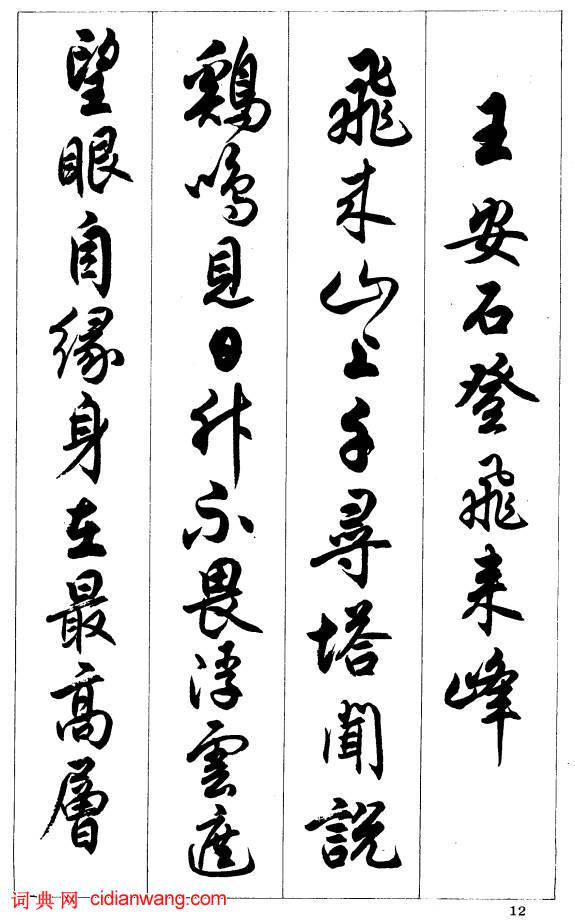 王安石登飛来峰
飛来山上千尋塔聞説
鷄鳴見日升不畏浮雲遮
望眼自緣身在最高層
词典网 cidianwang.com
12